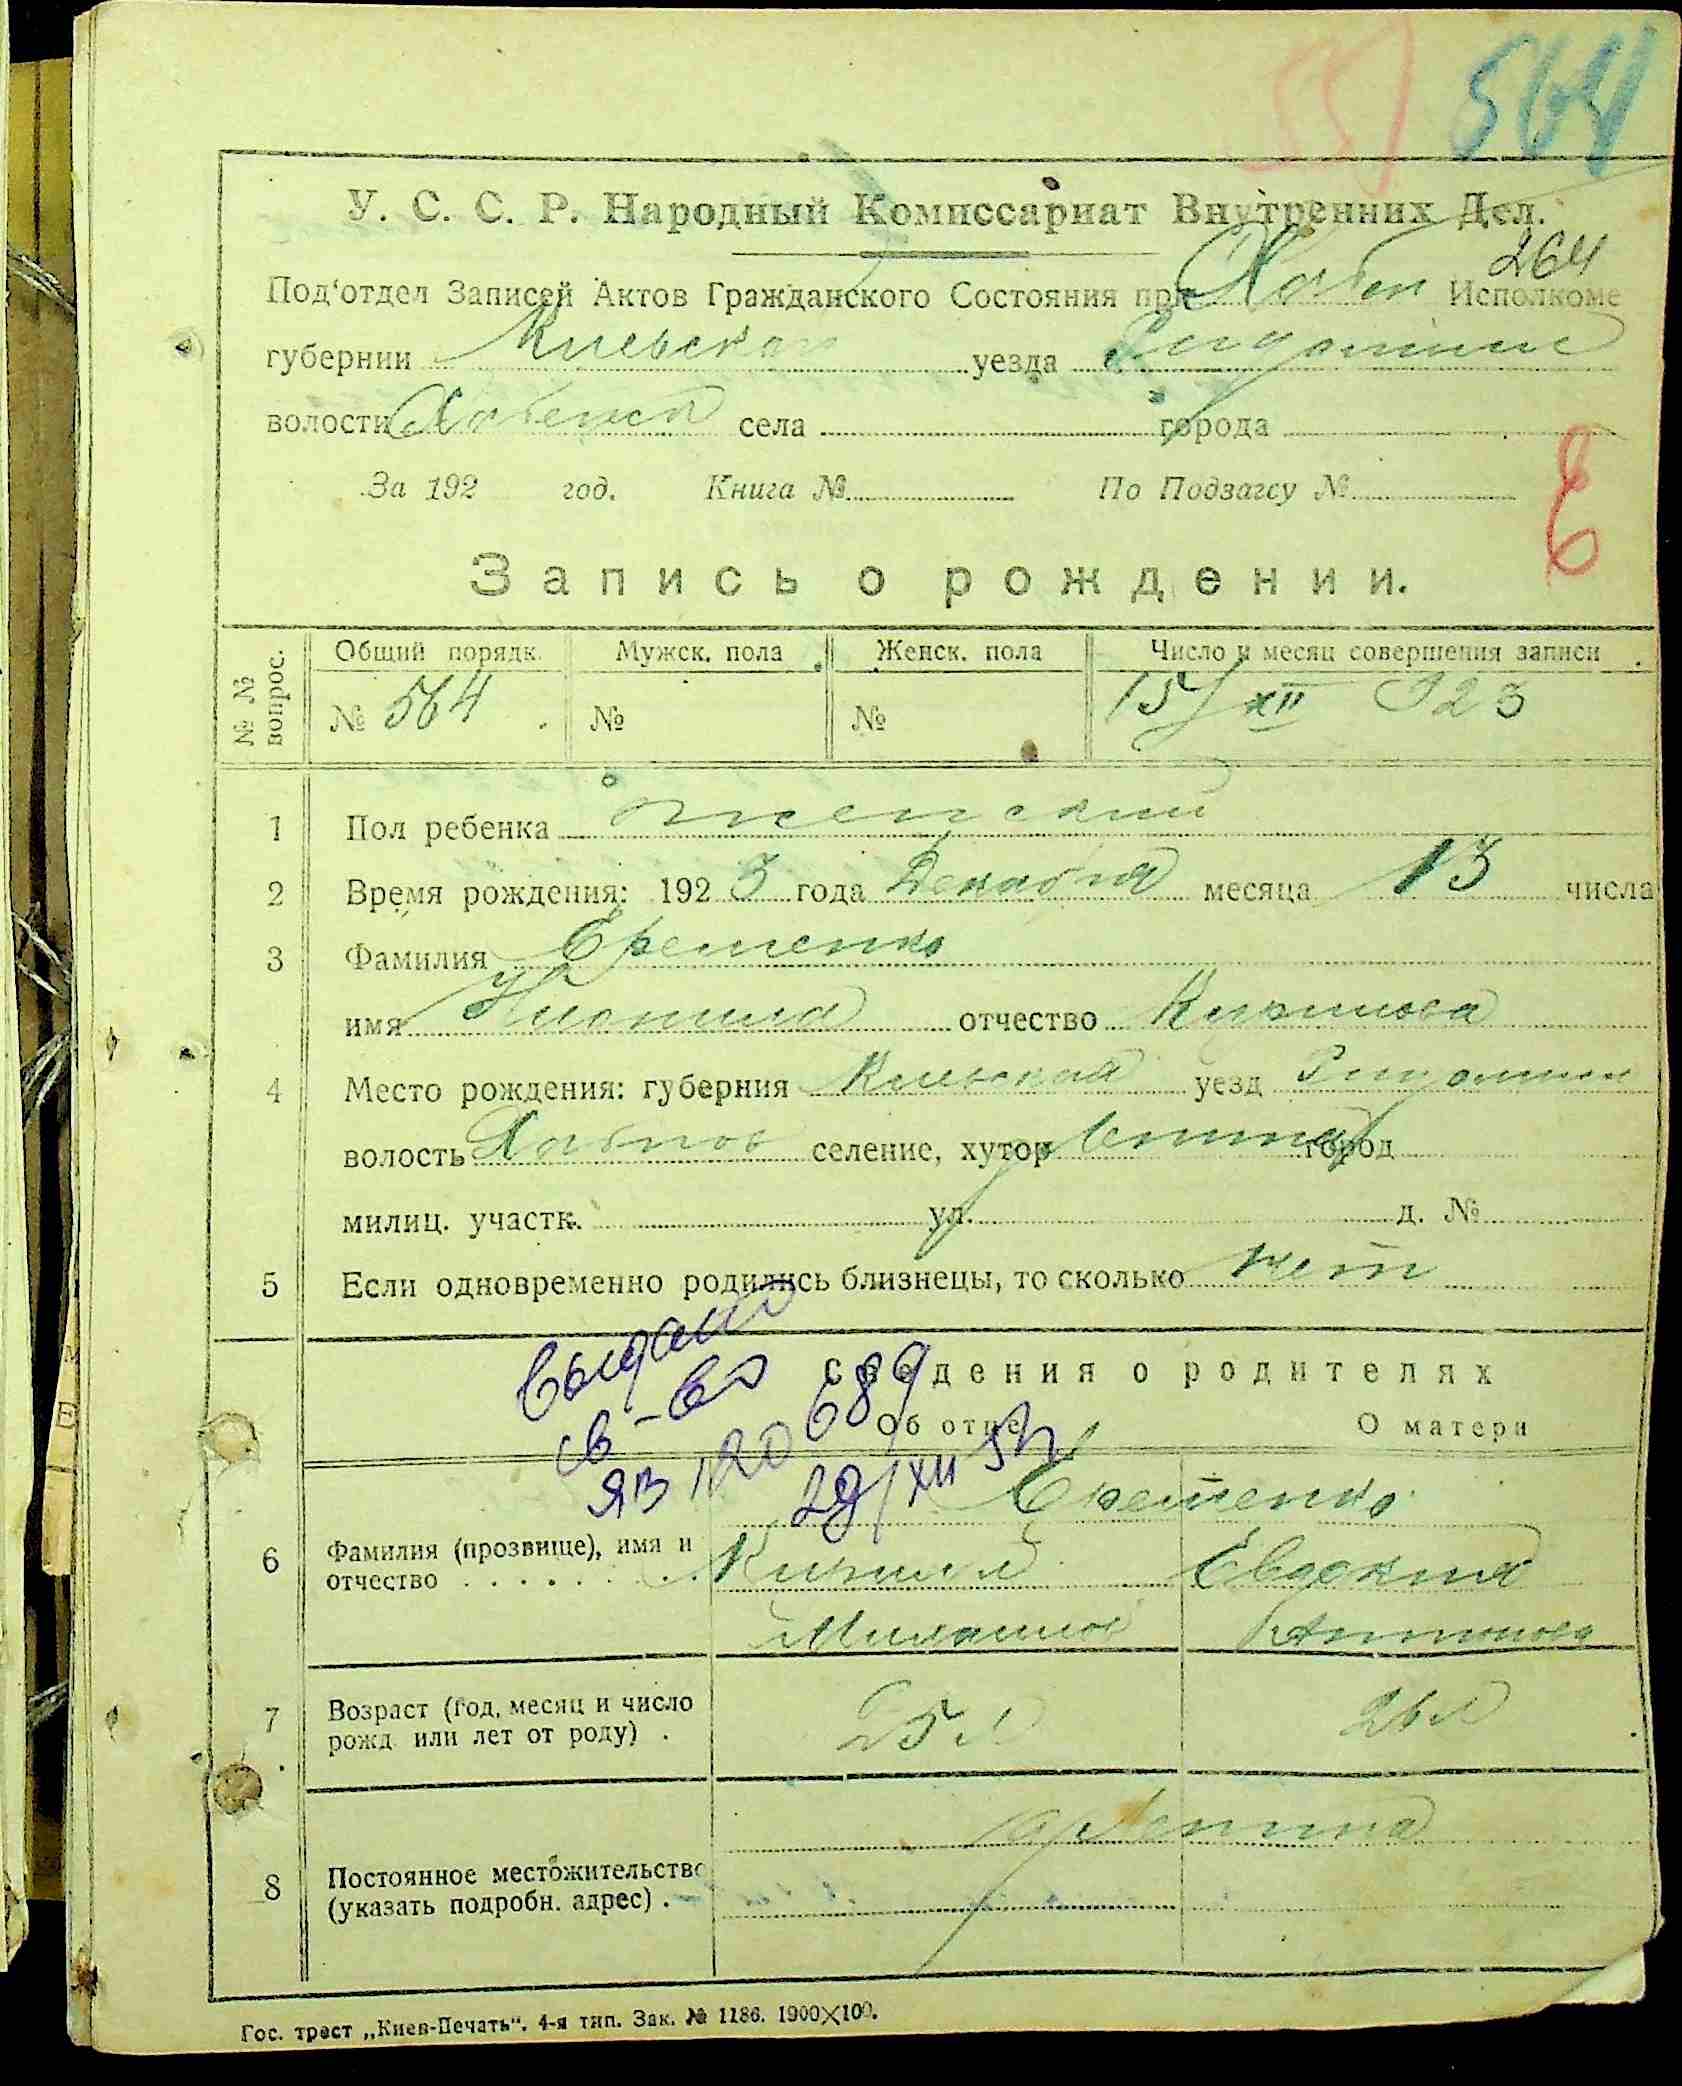 564
У. С. С. Р. Народный Комиссариат Внутренних Дел.
264
Под'отдел Записей Актов Гражданского Состояния при Хабен Исполкоме
губернии Киевская уезда
волости села города
За 192 год. Книга № По Подзагсу №
Е
Запись о рождении.
№ № вопрос.
Общий порядк. Мужск. пола Женск. пола Число и месяц совершения записи
№ 564 № № 15/XII 923
1 Пол ребенка женский
2 Время рождения: 1923 года Декабря месяца 13 числа
3 Фамилия Еременко
имя отчество Кирилова
4 Место рождения: губерния Киевская уезд
волость селение, хутор город
милиц. участк. ул. д. №
5 Если одновременно родились близнецы, то сколько нет
выдано
св-во
Сведения о родителях
Об отце О матери
ЯВ 120689
29/XII 
Еременко
6 Фамилия (прозвище), имя и отчество Кирилл Евдокия
Антонова
7 Возраст (год, месяц и число рожд. или лет от роду) 25 л 26 л
8 Постоянное местожительство (указать подробн. адрес)
Гос. трест „Киев-Печать". 4-я тип. Зак. № 1186. 1900×100.